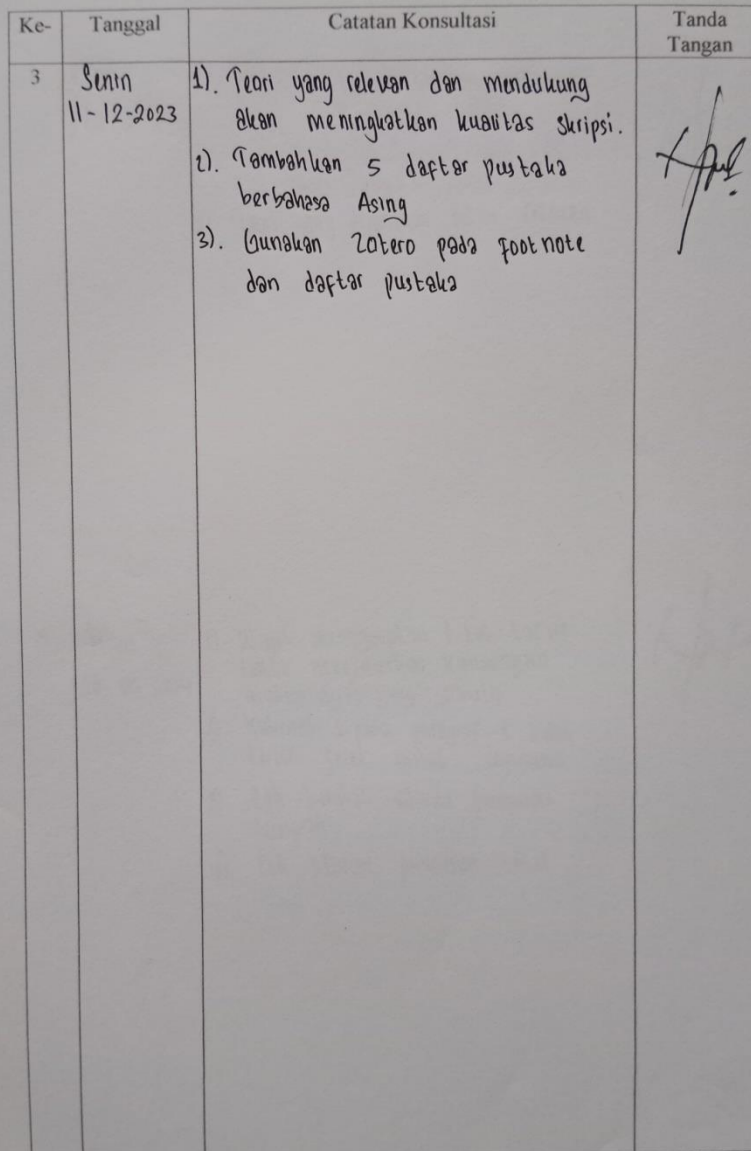 Ke- Tanggal Catatan Konsultasi Tanda Tangan
3 Senin 1). Teori yang relevan dan mendukung
11-12-2023 akan meningkatkan kualitas skripsi.
2). Tambahkan 5 daftar pustaka
berbahasa Asing
3). Gunakan Zotero pada footnote
dan daftar pustaka